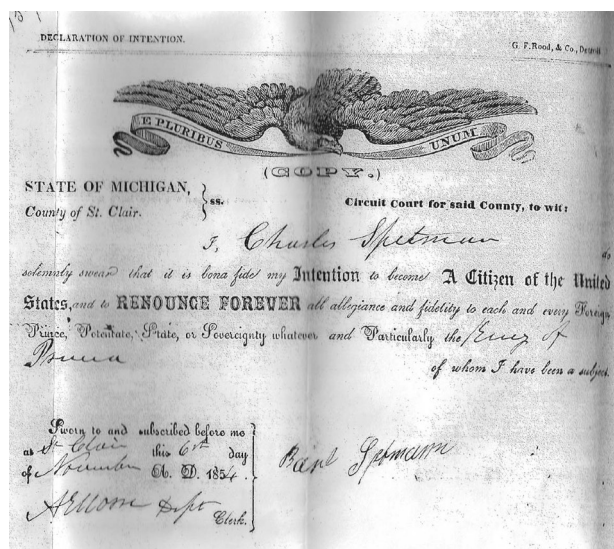 DECLARATION OF INTENTION.
G. F. Rood, & Co., Detroit
E PLURIBUS UNUM
(COPY.)
STATE OF MICHIGAN, } ss.
County of St. Clair.
Circuit Court for said County, to wit:
I, Charles Spetman do
solemnly swear that it is bona fide my Intention to become A Citizen of the United
States, and to RENOUNCE FOREVER all allegiance and fidelity to each and every Foreign
Prince, Potentate, State, or Sovereignty whatever and Particularly the King of
of whom I have been a subject.
Sworn to and subscribed before me
at St Clair this 6st day
of November A. D. 1854.
Dept Clerk.
Spetmann